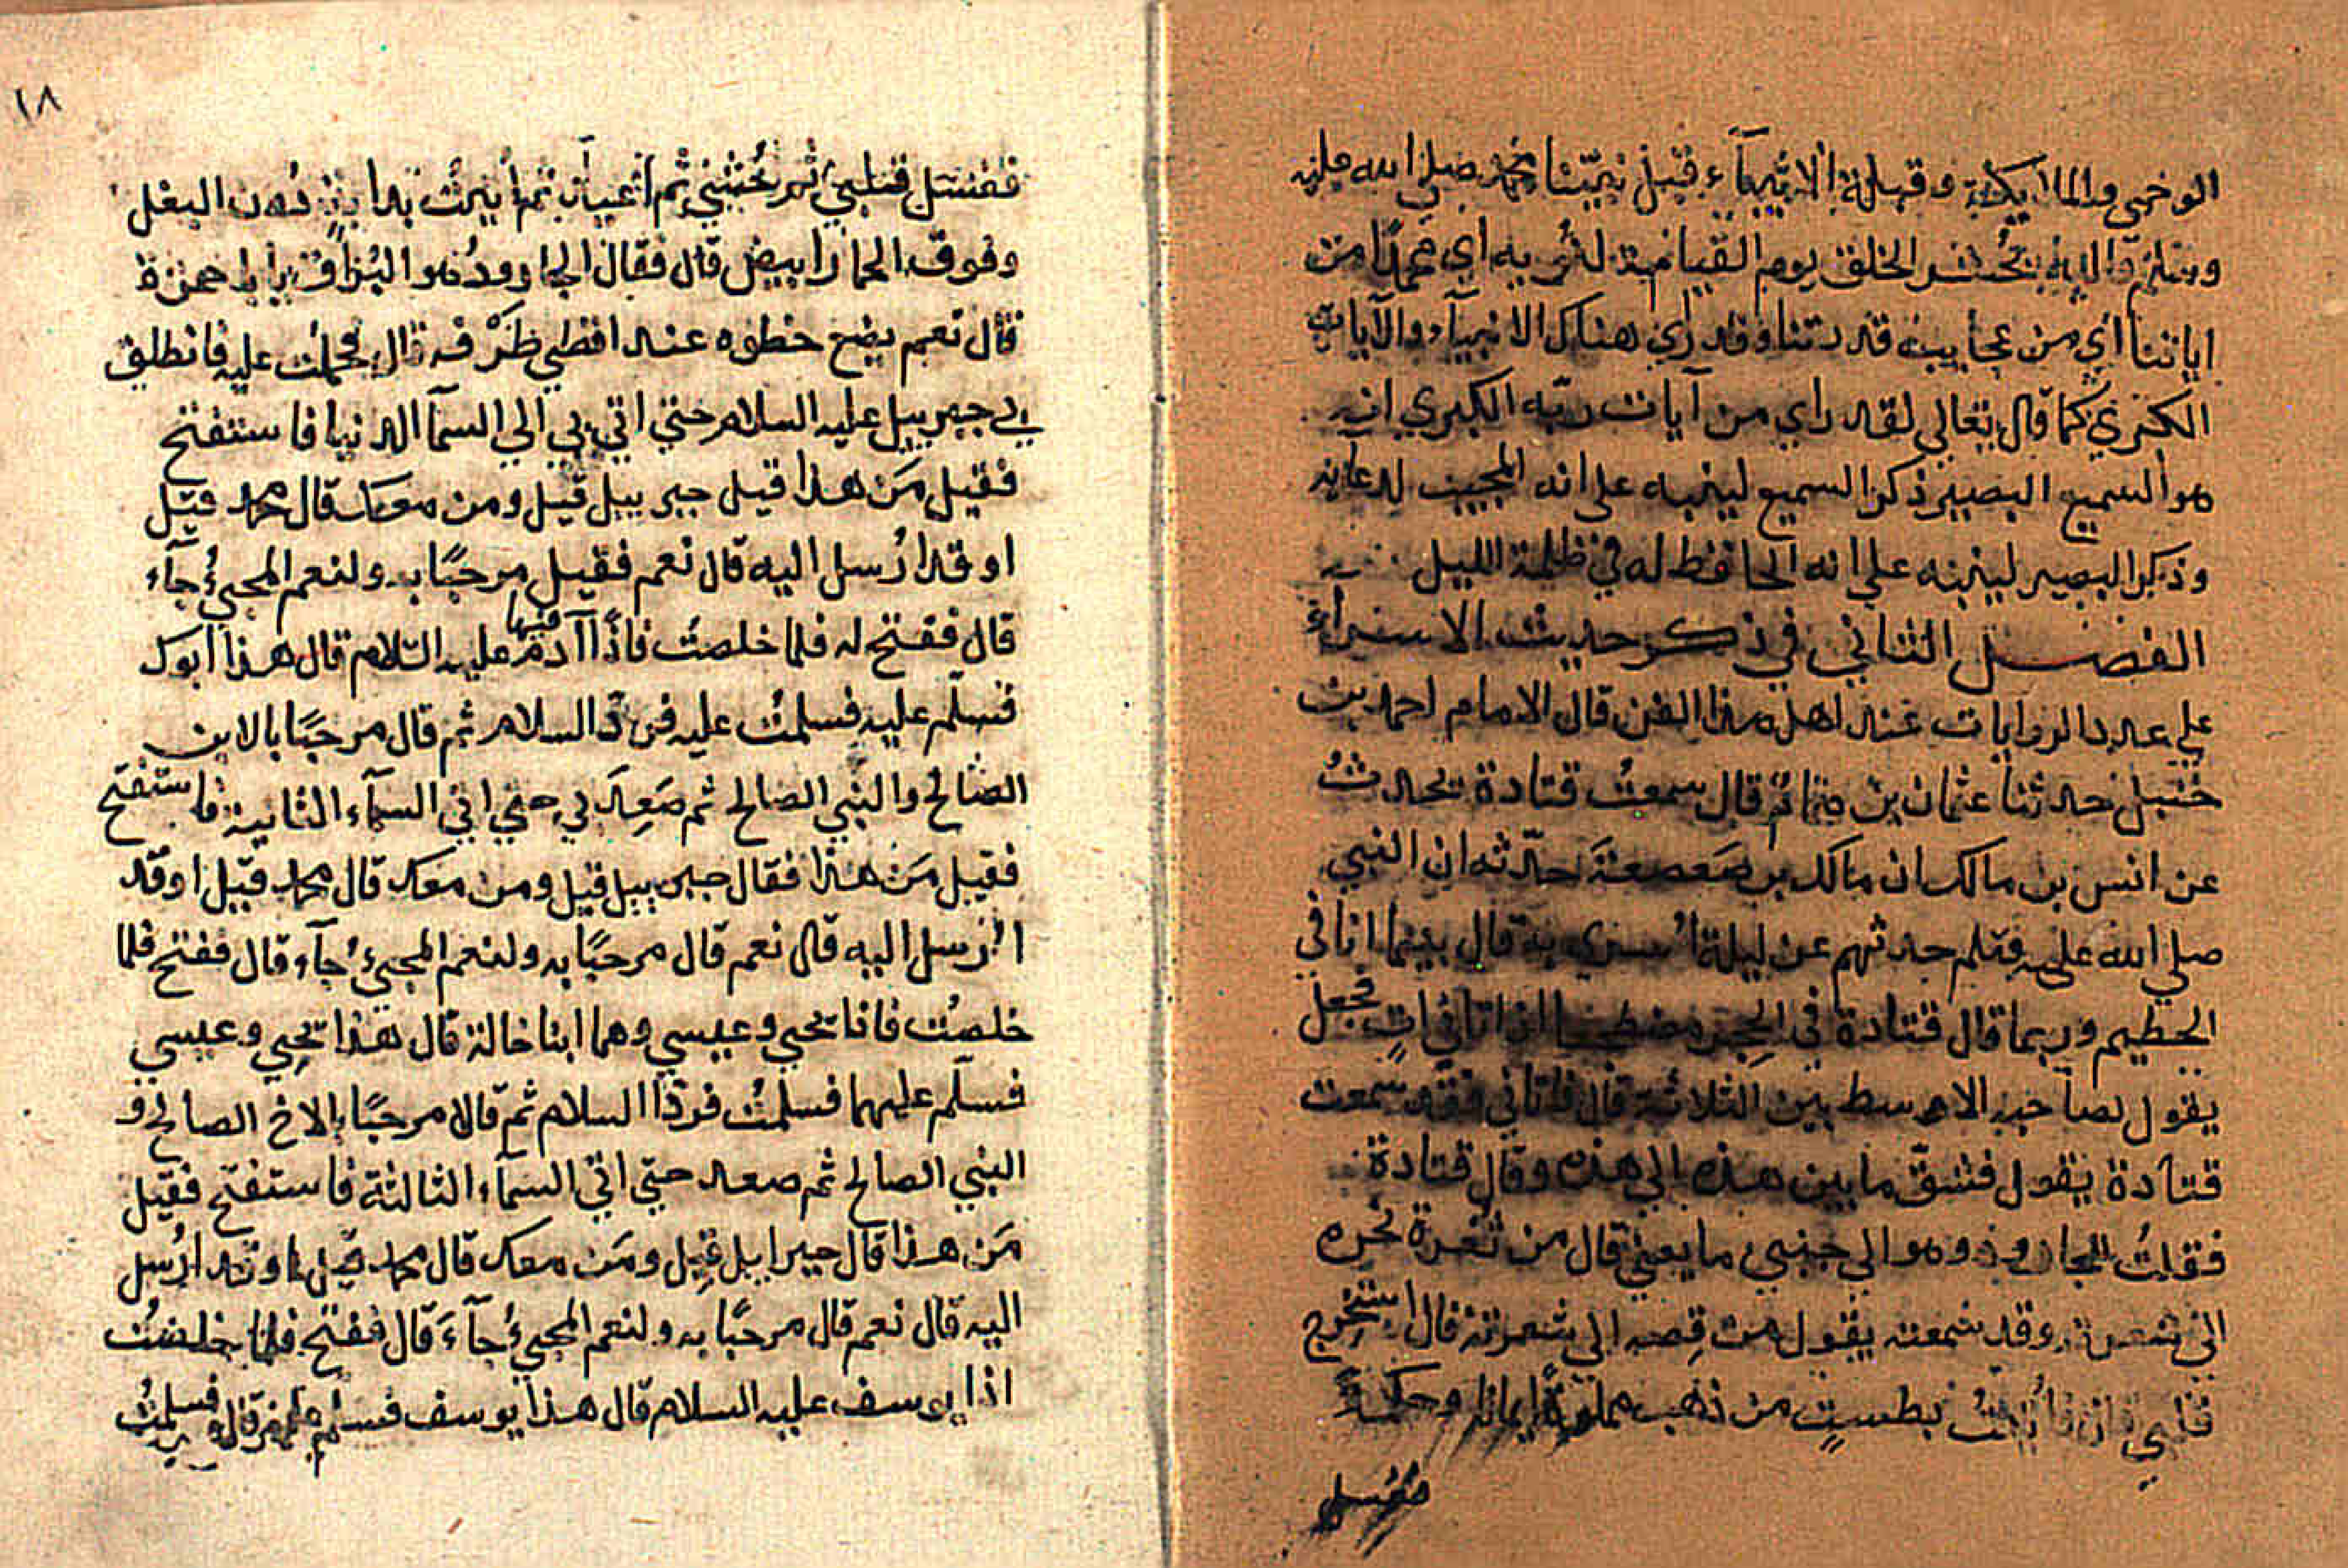 الوحي والملايكة وقبلة الانبيآء قبل نبيّنا محمد صلي الله عليه
وسلم واليه تحُشر الخلق يوم القيامة لنُريه اي محمدًا من
اياتنا اي من عجايب قدرتنا وقد راي هناك الانبيآء والآيات
الكبري كما قال تعالي لقد راي من آيات ربّه الكبري انه
هو السميع البصير ذكر السميع لينبه علي انه المجيب لدعايه
وذكر البصير لينبه علي انه الحافظ له في ظلمة الليل
الفصل الثاني في ذكر حديث الاسرآء
علي عدد الروايات عند اهل هذا الفن قال الامام احمد بن
حنبل حدثنا عثمان بن قال سمعتُ قتادة تحدثُ
عن انس بن مالك ان مالك بن صَعصعةَ حدّثه ان النبي
صلي الله عليه وسلم حدثهم عن ليلة اُسري به قال بينما انا في
الحطيم وربما قال قتادة في الحِجر مضطجعا اذ اتاني اتٍ فجعل
يقول لصاحبه الاوسط بين الثلاثة قال فاتاني فقد سمعت
قتادة يقول فشقّ ما بين هذه الي هذه وقال قتادة
فقلتُ للجارود وهو الي جنبي ما يعني قال من ثغرة نحره
الي شعرته وقد سمعته يقول من قِصه الي شعرته قال استخرج
قلبي فاُتيتُ بطستٍ من ذهب مملوةً ايمانا وحكمةً
فغسل
١٨
فغسل قلبي ثم حُشي ثم اُعيد ثم اُتيتُ بدابةٍ دُون البغل
وفوق الحمار ابيض قال فقال الجارودُ هو البُراق يا ابا حمزة
قال نعم يضع خطوه عند اقصي طَرْفه قال فحملت عليه فانطلق
بي جبرييل عليه السلام حتي اتي بي الي السمآ الدنيا فاستفتح
فقيل مَن هذا قيل جبرييل قيل ومن معك قال محمد قيل
اوقد ارُسل اليه قال نعم فقيل مرحبًا به ولنعم المجيُ جآء
قال ففتح له فلما خلصتُ فاذًا فيها آدم عليه السلام قال هذا ابوك
فسلّم عليه فسلمتُ عليه فردّ السلام ثم قال مرحبًا بالابن
الصالح والنبي الصالح ثم صَعِدَ بي حتي اتي السمآء الثانية فاستفتح
فقيل مَن هذا فقال جبرييل قيل ومن معك قال محمد قيل اوقد
ارُسل اليه قال نعم قال مرحبًا به ولنعم المجيُ جآء قال ففتح فلما
خلصتُ فاذا يحيي وعيسي وهما ابنا خالة قال هذا يحيي وعيسي
فسلّم عليهما فسلمتُ فردّا السلام ثم قالا مرحبًا بالاخ الصالح و
النبي الصالح ثم صعد حتي اتي السمآء الثالثة فاستفتح فقيل
مَن هذا قال جبراييل قيل ومَن معك قال محمد قيل اوقد ارُسل
اليه قال نعم قال مرحبًا به ولنعم المجيُ جآءَ قال ففتح فلما خلصتُ
اذا يوسف عليه السلام قال هذا يوسف فسلّم عليه قال فسلمتُ